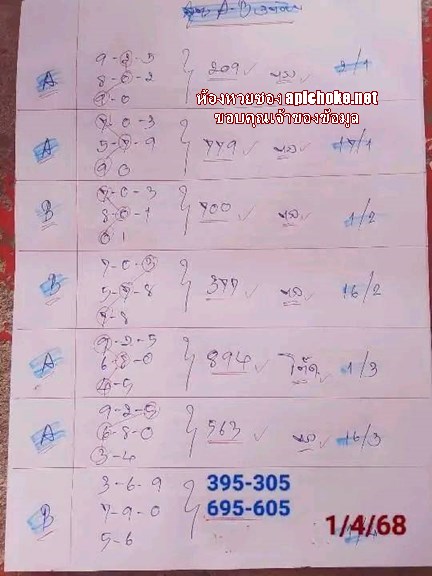 A-B
9-2-5
A 8-0-2 209 2/1
9-0
ห้องหวยซอง apichoke.net
ขอบคุณเจ้าของข้อมุล
7-0-3
A 5-7-9 779 17/1
9 0
7-0-3
B 8-0-1 700 1/2
0 1
7-0-3
B 5-7-8 377 16/2
7-8
9-2-5
A 6-8-0 894 โต๊ด 1/3
4-5
9-2-5
A 6-8-0 563 16/3
3-4
3-6-9 395-305
B 7-9-0 695-605
5-6 1/4/68